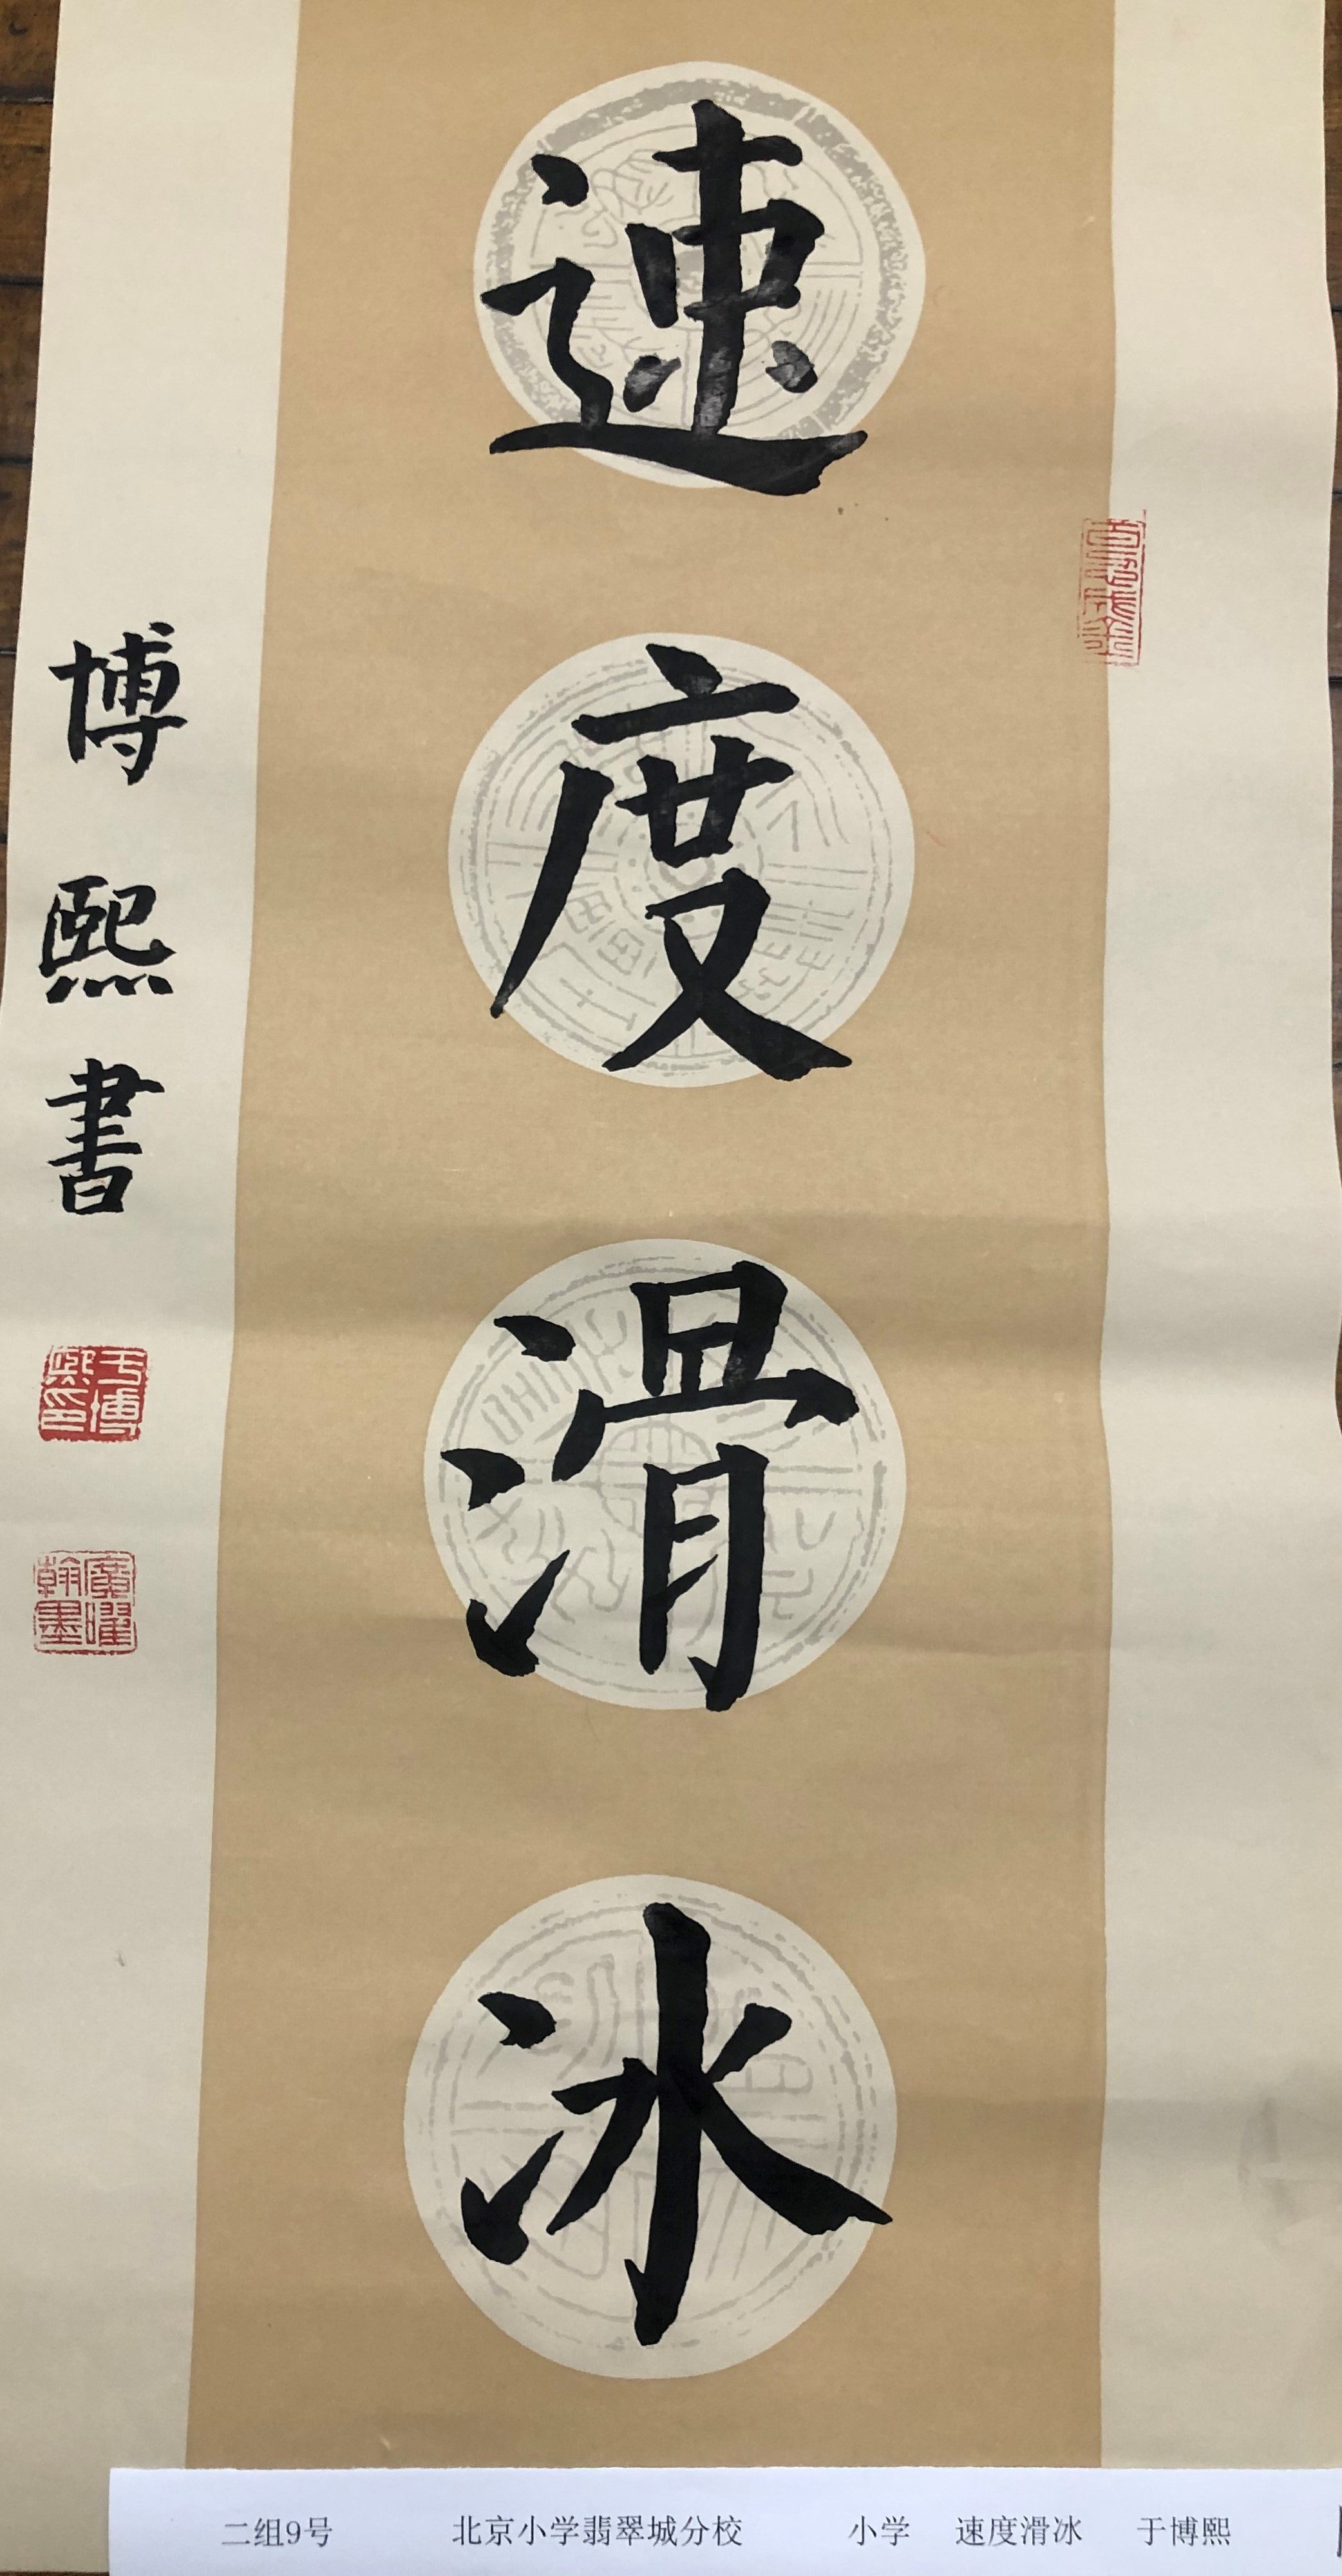 速度滑冰
博熙書
于博熙印
廣曜翰墨
二组9号 北京小学翡翠城分校 小学 速度滑冰 于博熙